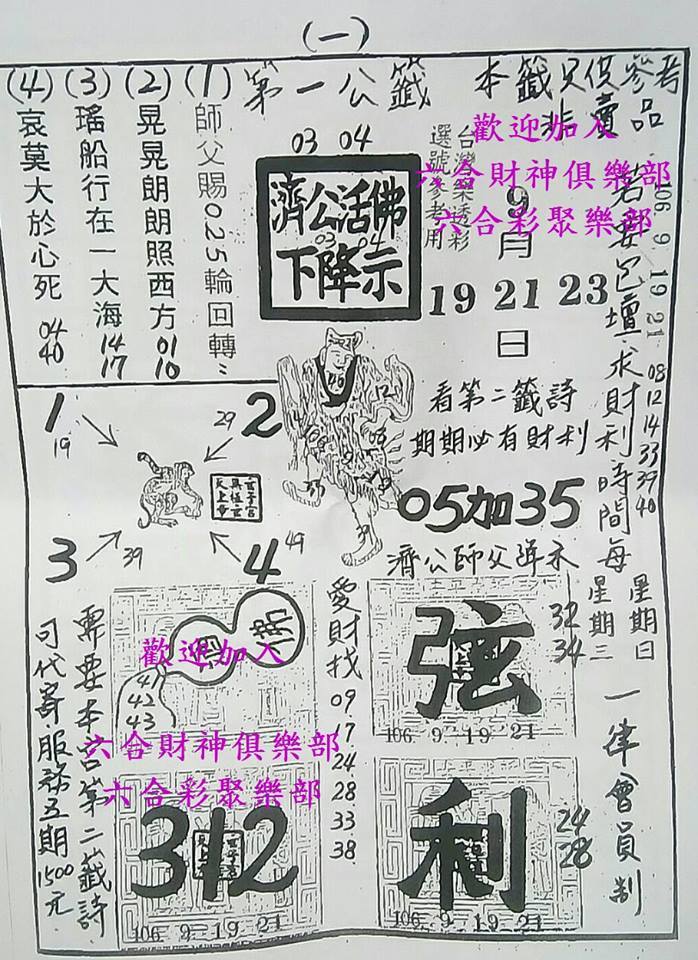 (一)
第一公籤
本籤只供參考
非賣品
03 04
台灣樂透彩
選號參考用
濟公活佛
03 04
下降示
9月
19 21 23
日
歡迎加入
六合財神俱樂部
六合彩聚樂部
(1) 師父賜025輪回轉
(2) 晃晃朗朗照西方 01 10
(3) 瑤船行在一大海 14 17
(4) 哀莫大於心死 04 40
106 9 19 21
08 12 14 33 39 40
求財利時間每
星期三
星期日
一律會員制
看第二籤詩
期期必有財利
05加35
濟公師父降示
1
19
2
29
3
39
4
49
12
03
39
愛財找
09
17
24
28
33
38
弦
32
34
106 9 19 21
利
24
28
106 9 19 21
佛
41
42
43
歡迎加入
六合財神俱樂部
六合彩聚樂部
312
106 9 19 21
需要本宮第二籤詩
可代寄服務五期1500元